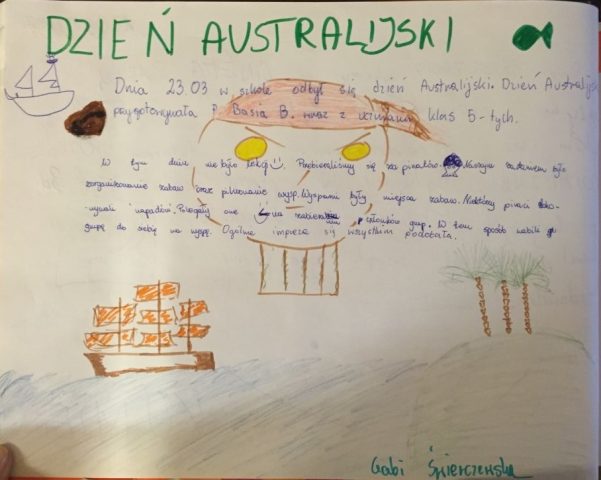 DZIEŃ AUSTRALIJSKI
Dnia 23.03 w szkole odbył się dzień Australijski. Dzień Australijs
przygotowała P. Basia B. wraz z uczniami klas 5-tych.
W tym dniu nie było lekcji. Przebieraliśmy się za piratów. Naszym zadaniem było
zorganizowanie zabaw oraz pilnowanie wysp. Wyspami były miejsca zabaw. Niektórzy piraci
napadów. Polegały one na członków grup. W ten sposób
grupę do siebie na wyspę. Ogólnie impreza się wszystkim podobała.
Gabi Świerczewska